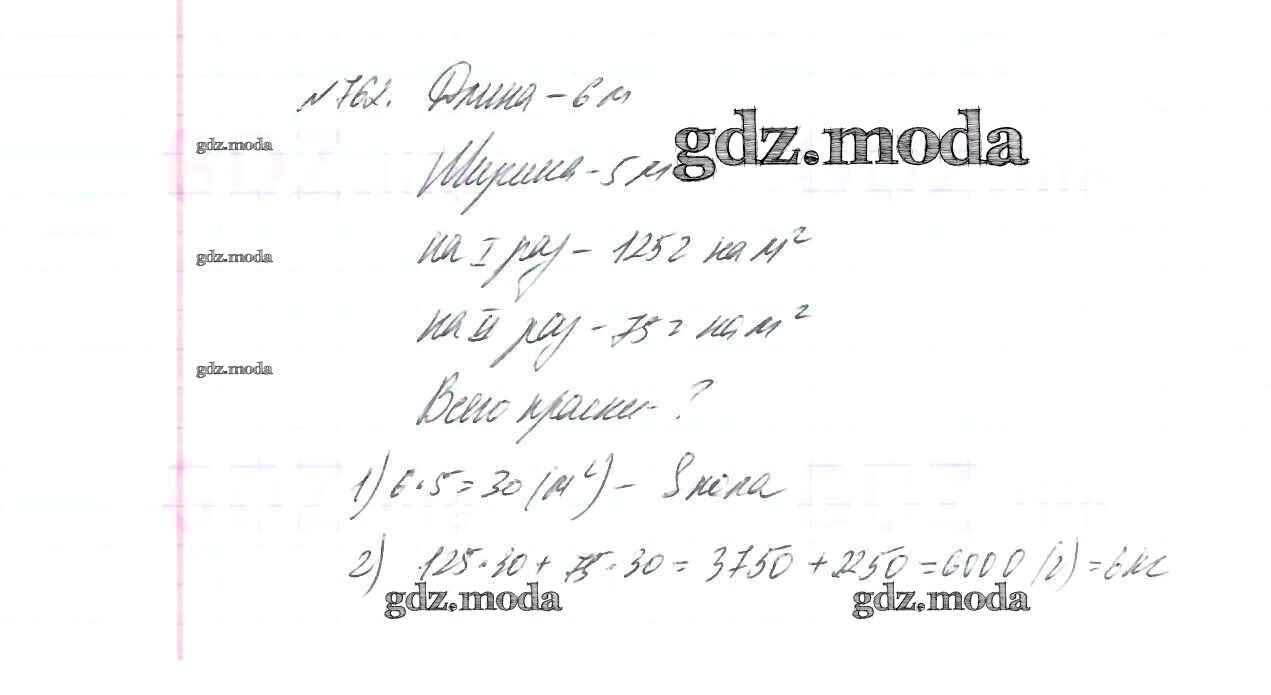 №762. Длина – 6 м
gdz.moda
gdz.moda
Ширина – 5 м
на I раз – 125 г на м²
gdz.moda
на II раз – 75 г на м²
gdz.moda
Всего краски – ?
1) 6·5=30 (м²) – S пола
2) 125·30 + 75·30 = 3750 + 2250 = 6000 (г) = 6 кг
gdz.moda
gdz.moda